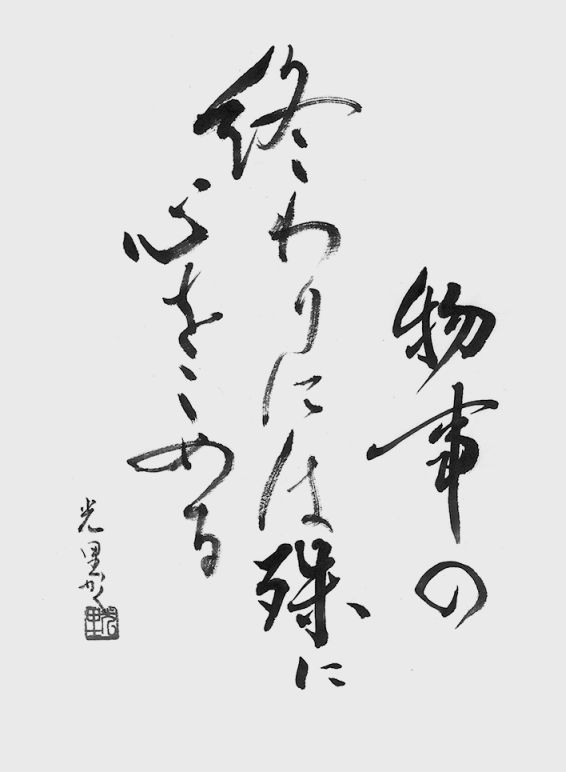 物事の
終わりには殊に
心をこめる
光里